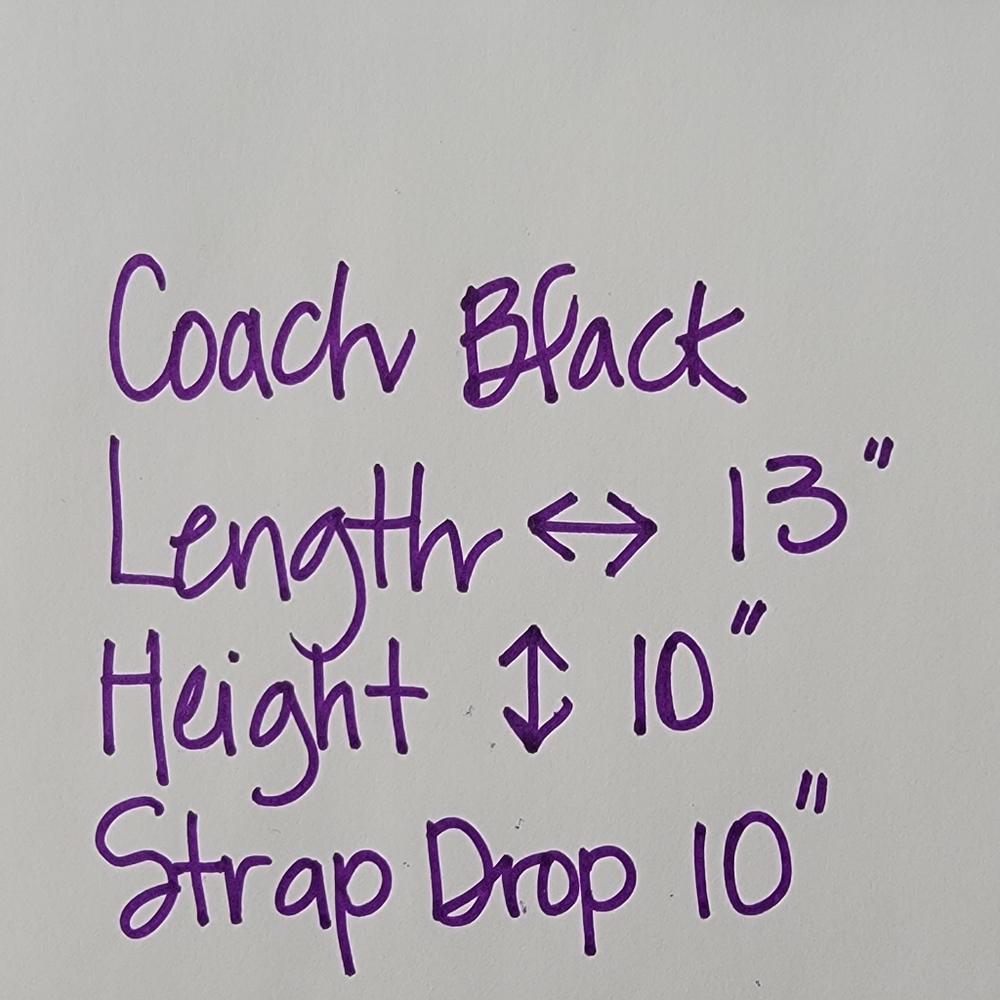 Coach Black
Length ↔ 13"
Height ↕ 10"
Strap Drop 10"